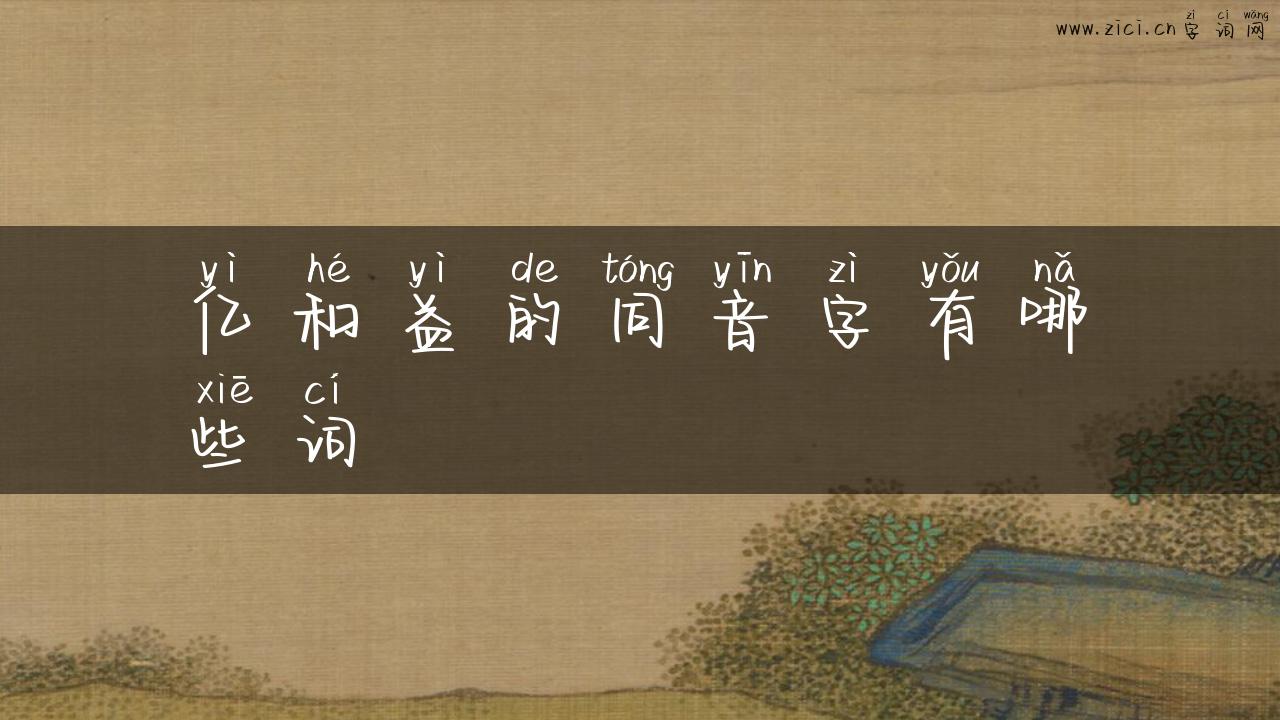 zì cí wǎng
www.zici.cn字词网
yì hé yì de tóng yīn zì yǒu nǎ
亿和益的同音字有哪
xiē cí
些词